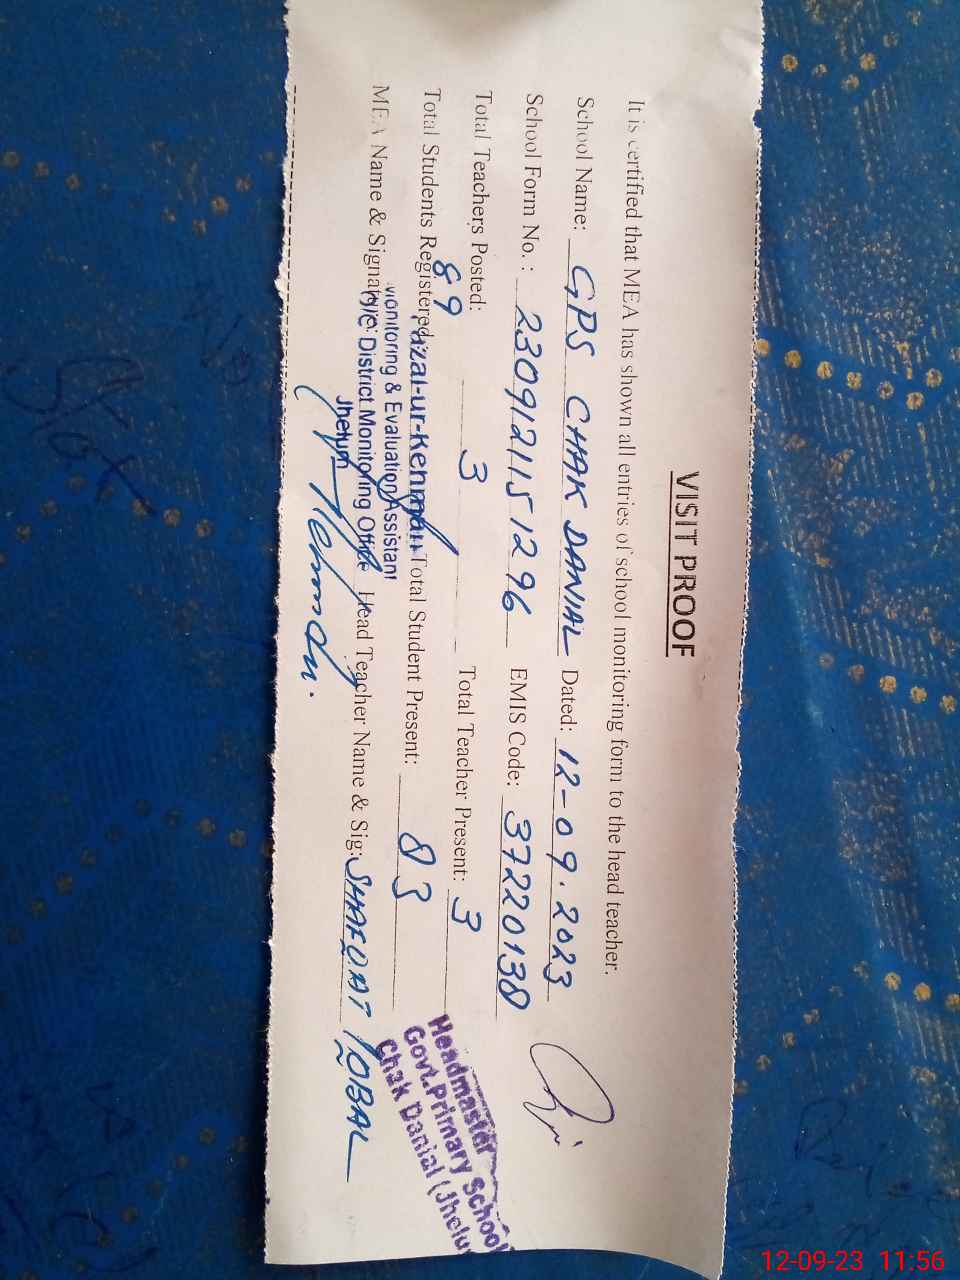 VISIT PROOF
It is certified that MEA has shown all entries of school monitoring form to the head teacher.
School Name: GPS CHAK DANIAL Dated: 12-09.2023
School Form No.: 2309121151296 EMIS Code: 37220138
Total Teachers Posted: 3 Total Teacher Present: 3
Total Students Registered: 89 Total Student Present: 83
MEA Name & Signature: Head Teacher Name & Sig: SHAFQAT IQBAL
Monitoring & Evaluation Assistant
O/O: District Monitoring Office
Jhelum
Headmaster
Govt. Primary School
Chak Danial (Jhelu
12-09-23 11:56